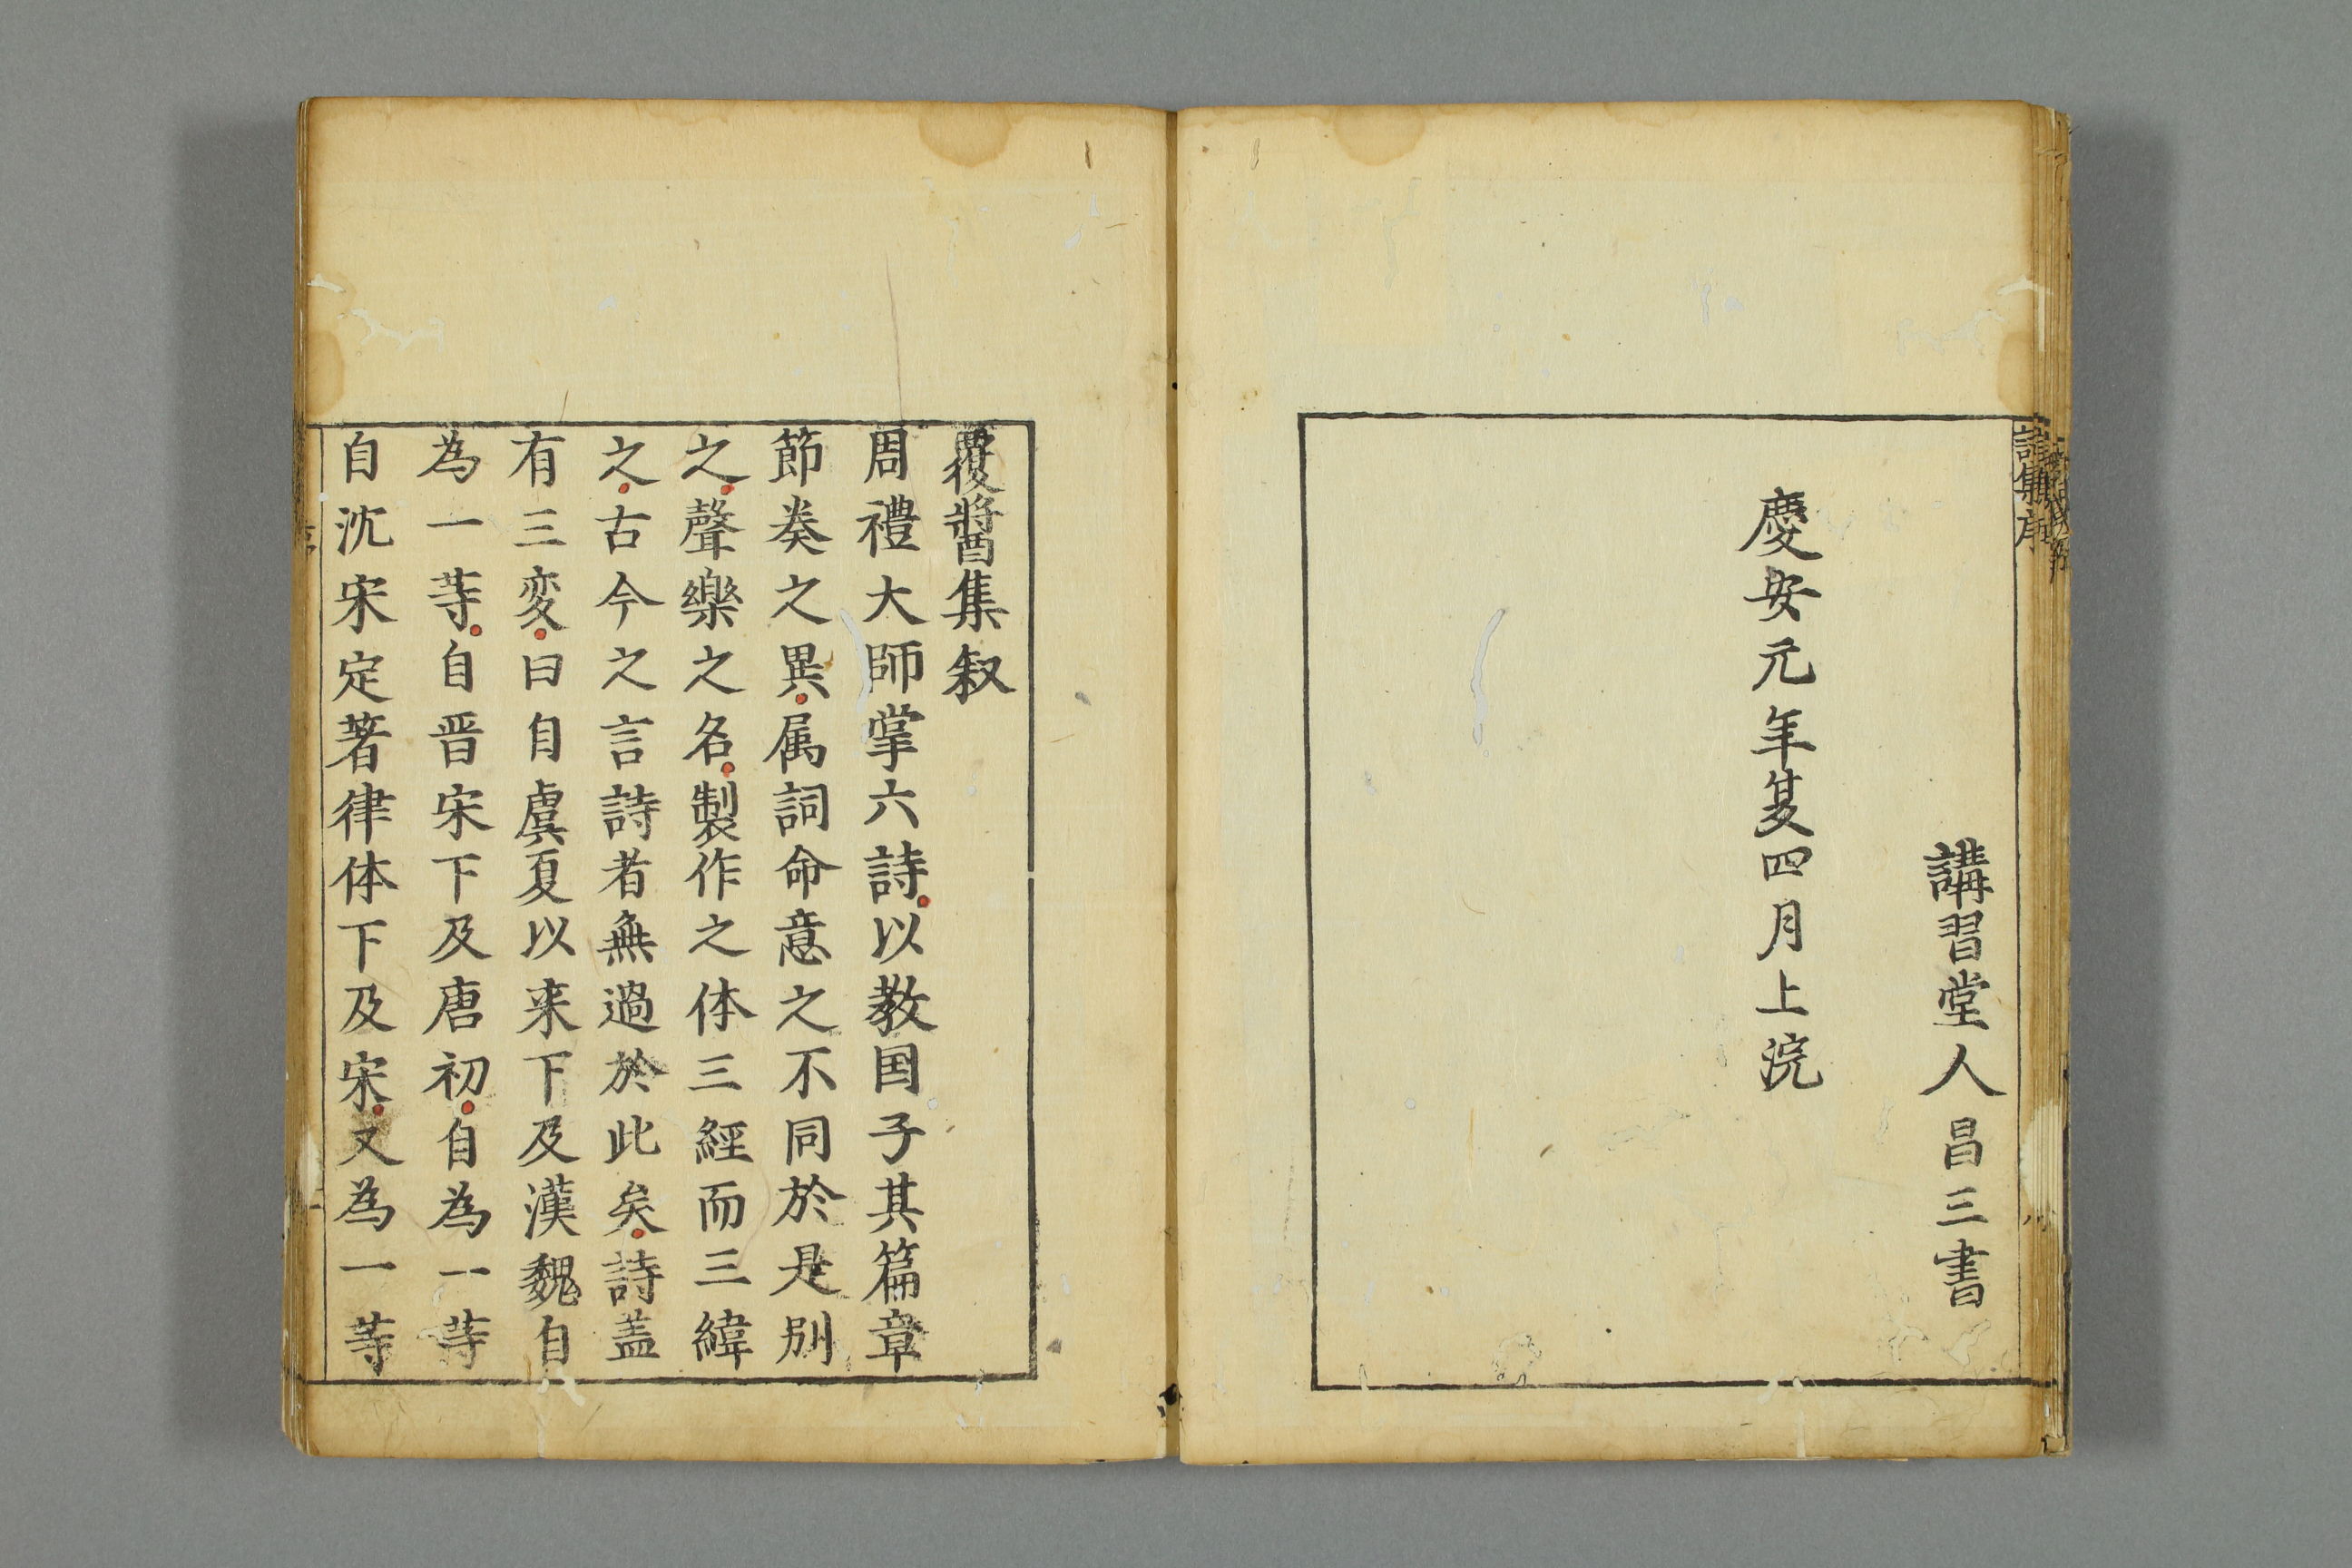 講習堂人昌三書
慶安元年夏四月上浣
覆醬集叙
周禮大師掌六詩以教国子其篇章
節奏之異属詞命意之不同於是別
之聲樂之名製作之体三經而三緯
之古今之言詩者無過於此矣詩盖
有三変曰自虞夏以来下及漢魏自
為一等自晋宋下及唐初自為一等
自沈宋定著律体下及宋又為一等